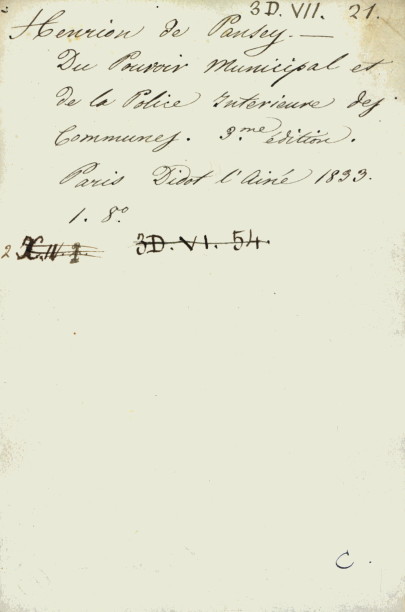 3D. VII. 21.
Henrion de Pansey. —
Du Pouvoir Municipal et
de la Police Interieure des
Communes. 3.me édition.
Paris Didot l'Ainé 1833.
1. 8º
2 3D. VI. 54.
C.